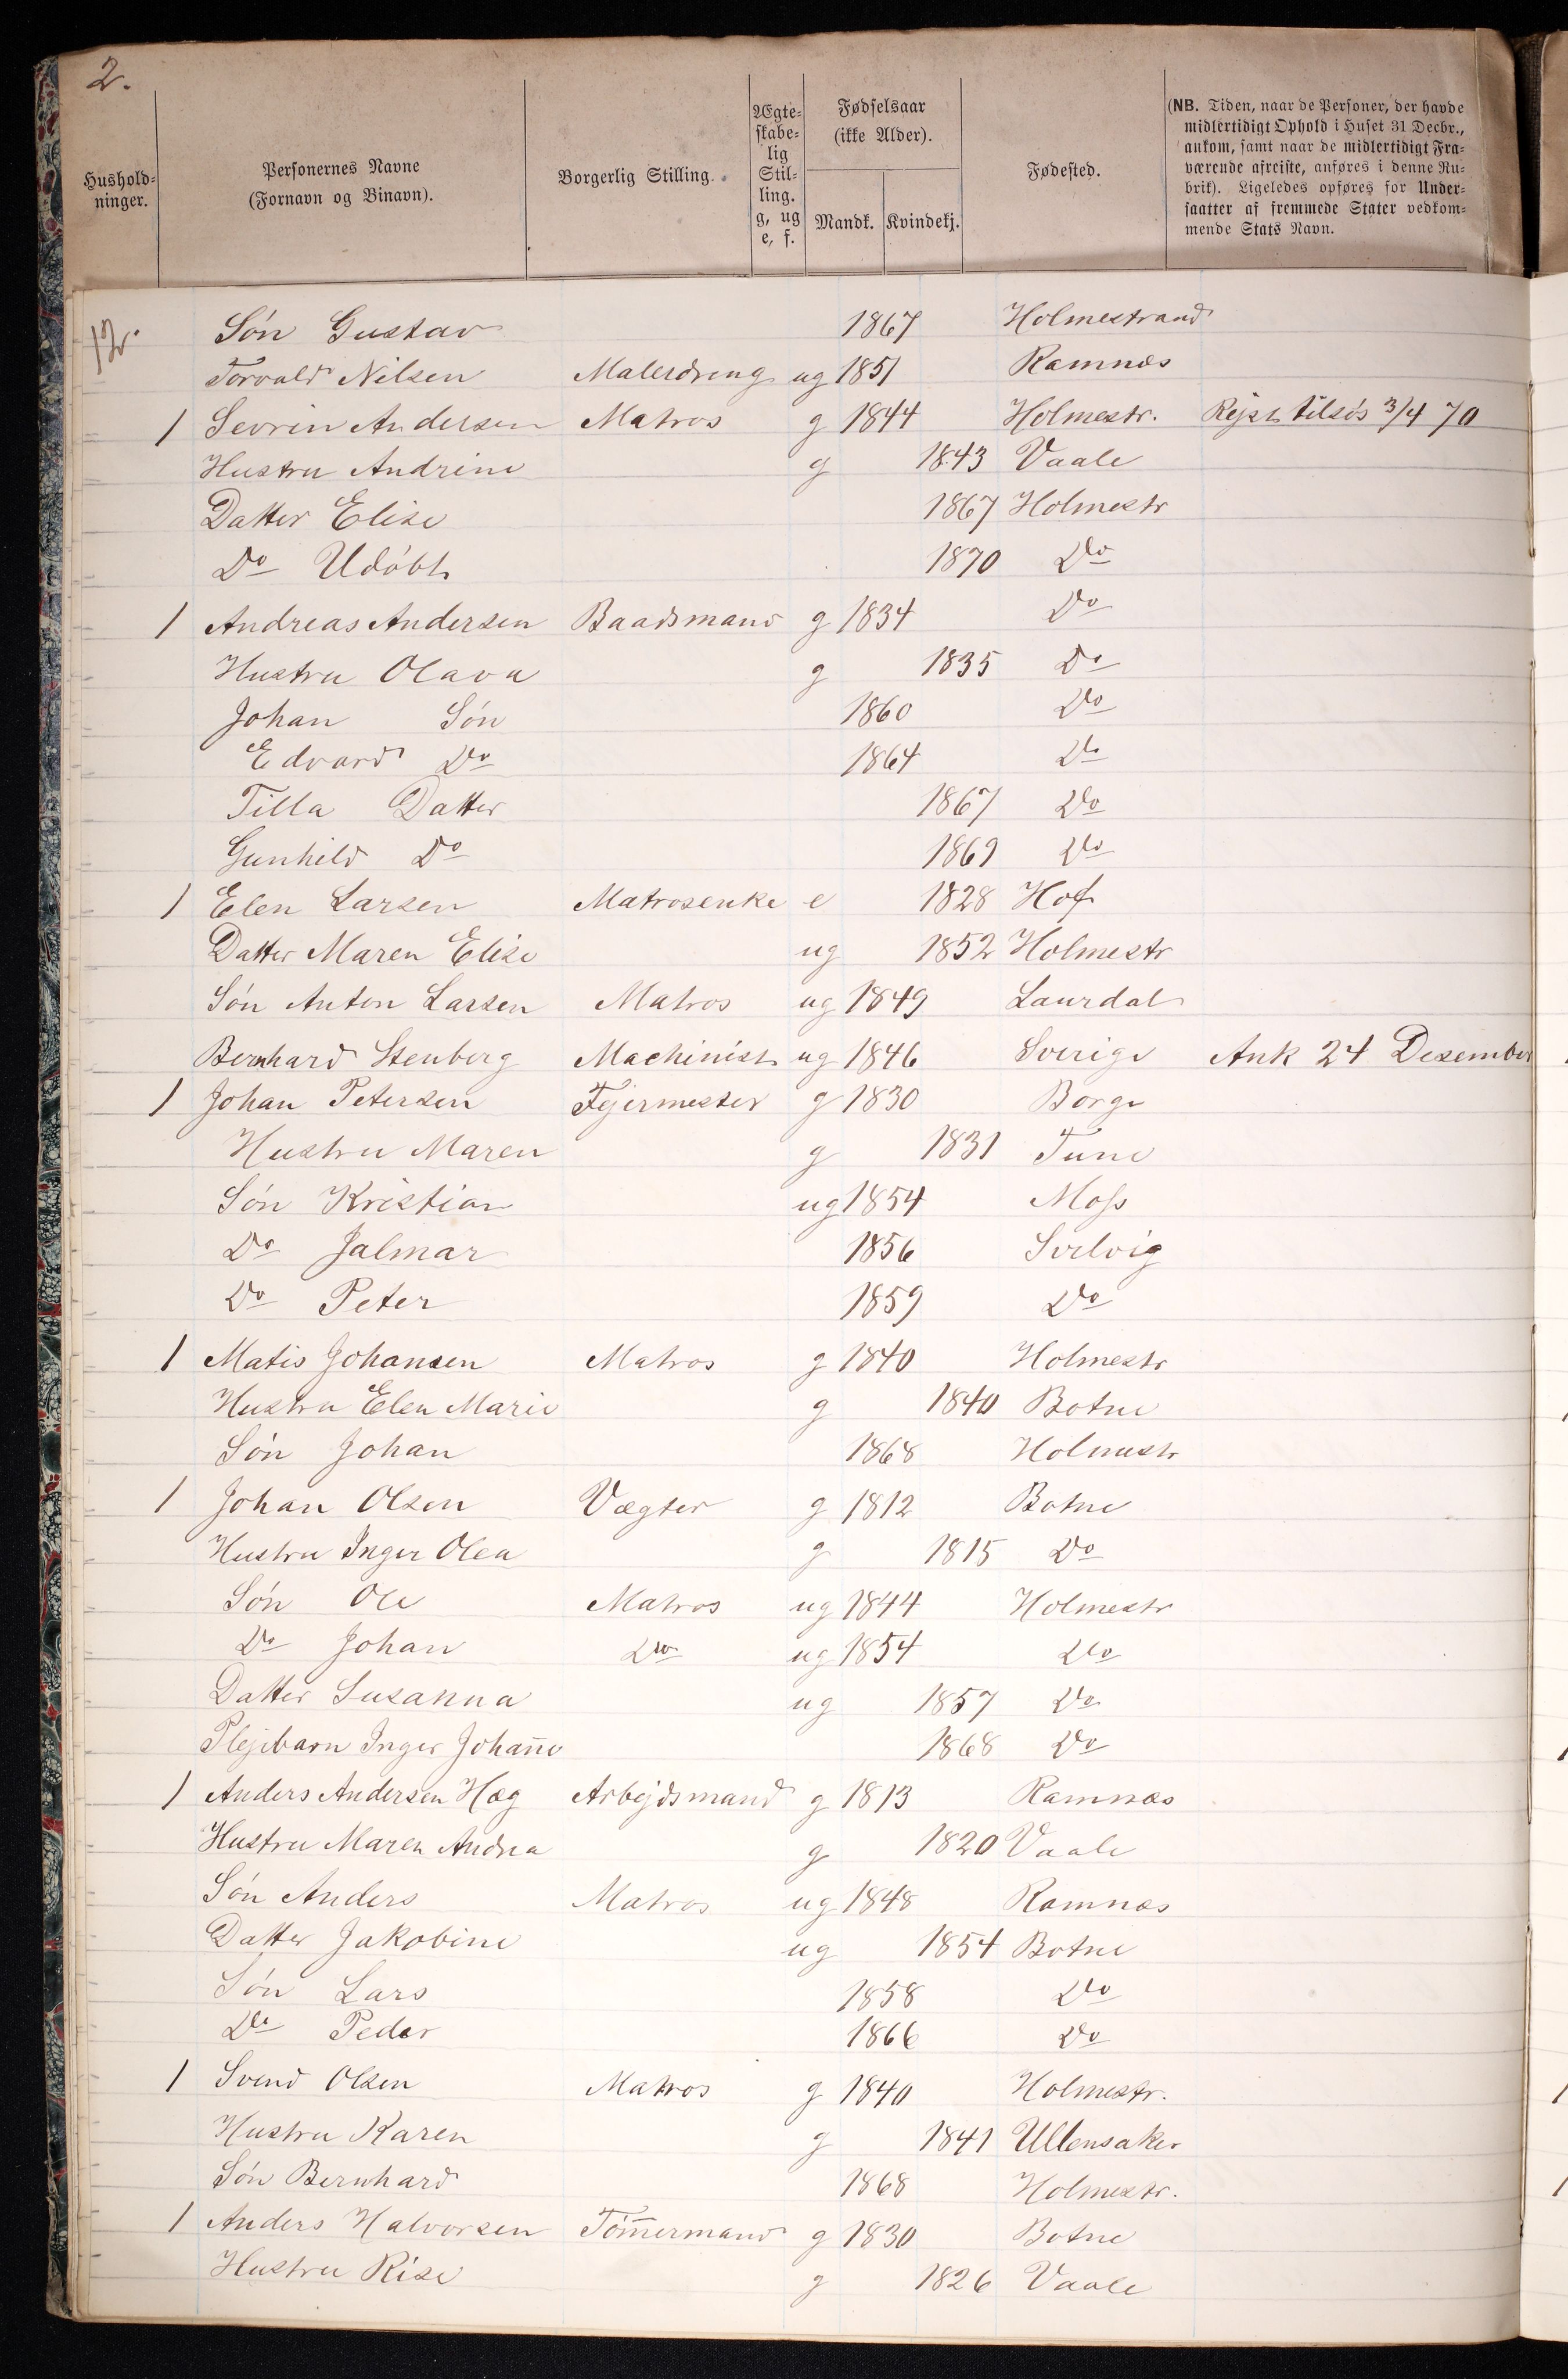 2.
Hushold-
ninger.
Personernes Navne
(Fornavn og Binavn).
Borgerlig Stilling.
Ægte-
skabe-
lig
Stil-
ling.
g, ug
e, f.
Fødselsaar
(ikke Alder).
Mandk. Kvindekj.
Fødested.
(NB. Tiden, naar de Personer, der havde
midlertidigt Ophold i Huset 31 Decbr.,
ankom, samt naar de midlertidigt Fra-
værende afreiste, anføres i denne Ru-
brik). Ligeledes opføres for Under-
saatter af fremmede Stater vedkom-
mende Stats Navn.
12. Sön Gustav 1867 Holmestrand
Torvald Nilsen Malerdreng ug 1851 Ramnæs
1 Sevrin Andersen Matros g 1844 Holmestr. Rejst tilsös 3/4 70
Hustru Andrine g 1843 Vaale
Datter Elise 1867 Holmestr
Do Udöbt 1870 Do
1 Andreas Andersen Baadsmand g 1834 Do
Hustru Olava g 1835 Do
Johan Sön 1860 Do
Edvard Do 1864 Do
Tilla Datter 1867 Do
Gunhild Do 1869 Do
1 Elen Larsen Matrosenke e 1828 Hof
Datter Maren Elise ug 1852 Holmestr
Sön Anton Larsen Matros ug 1849 Laurdal
Bernhard Stenberg Machinist ug 1846 Sverige Ank 24 Desember
1 Johan Petersen Fejermester g 1830 Borge
Hustru Maren g 1831 Tune
Sön Kristian ug 1854 Moss
Do Jalmar 1856 Svelvig
Do Peter 1859 Do
1 Matis Johansen Matros g 1840 Holmestr
Hustru Elen Marie g 1840 Botne
Sön Johan 1868 Holmestr
1 Johan Olsen Vægter g 1812 Botne
Hustru Inger Olea g 1815 Do
Sön Ole Matros ug 1844 Holmestr
Do Johan Do ug 1854 Do
Datter Susanna ug 1857 Do
Plejebarn Inger Johan̄e 1868 Do
1 Anders Andersen Hæg Arbejdsmand g 1813 Ramnæs
Hustru Maren Andrea g 1820 Vaale
Sön Anders Matros ug 1848 Ramnæs
Datter Jakobine ug 1854 Botne
Sön Lars 1858 Do
Do Peder 1866 Do
1 Svend Olsen Matros g 1840 Holmestr.
Hustru Karen g 1841 Ullensaker
Sön Bernhard 1868 Holmestr.
1 Anders Halvorsen Töm̄ermand g 1830 Botne
Hustru Rise g 1826 Vaale